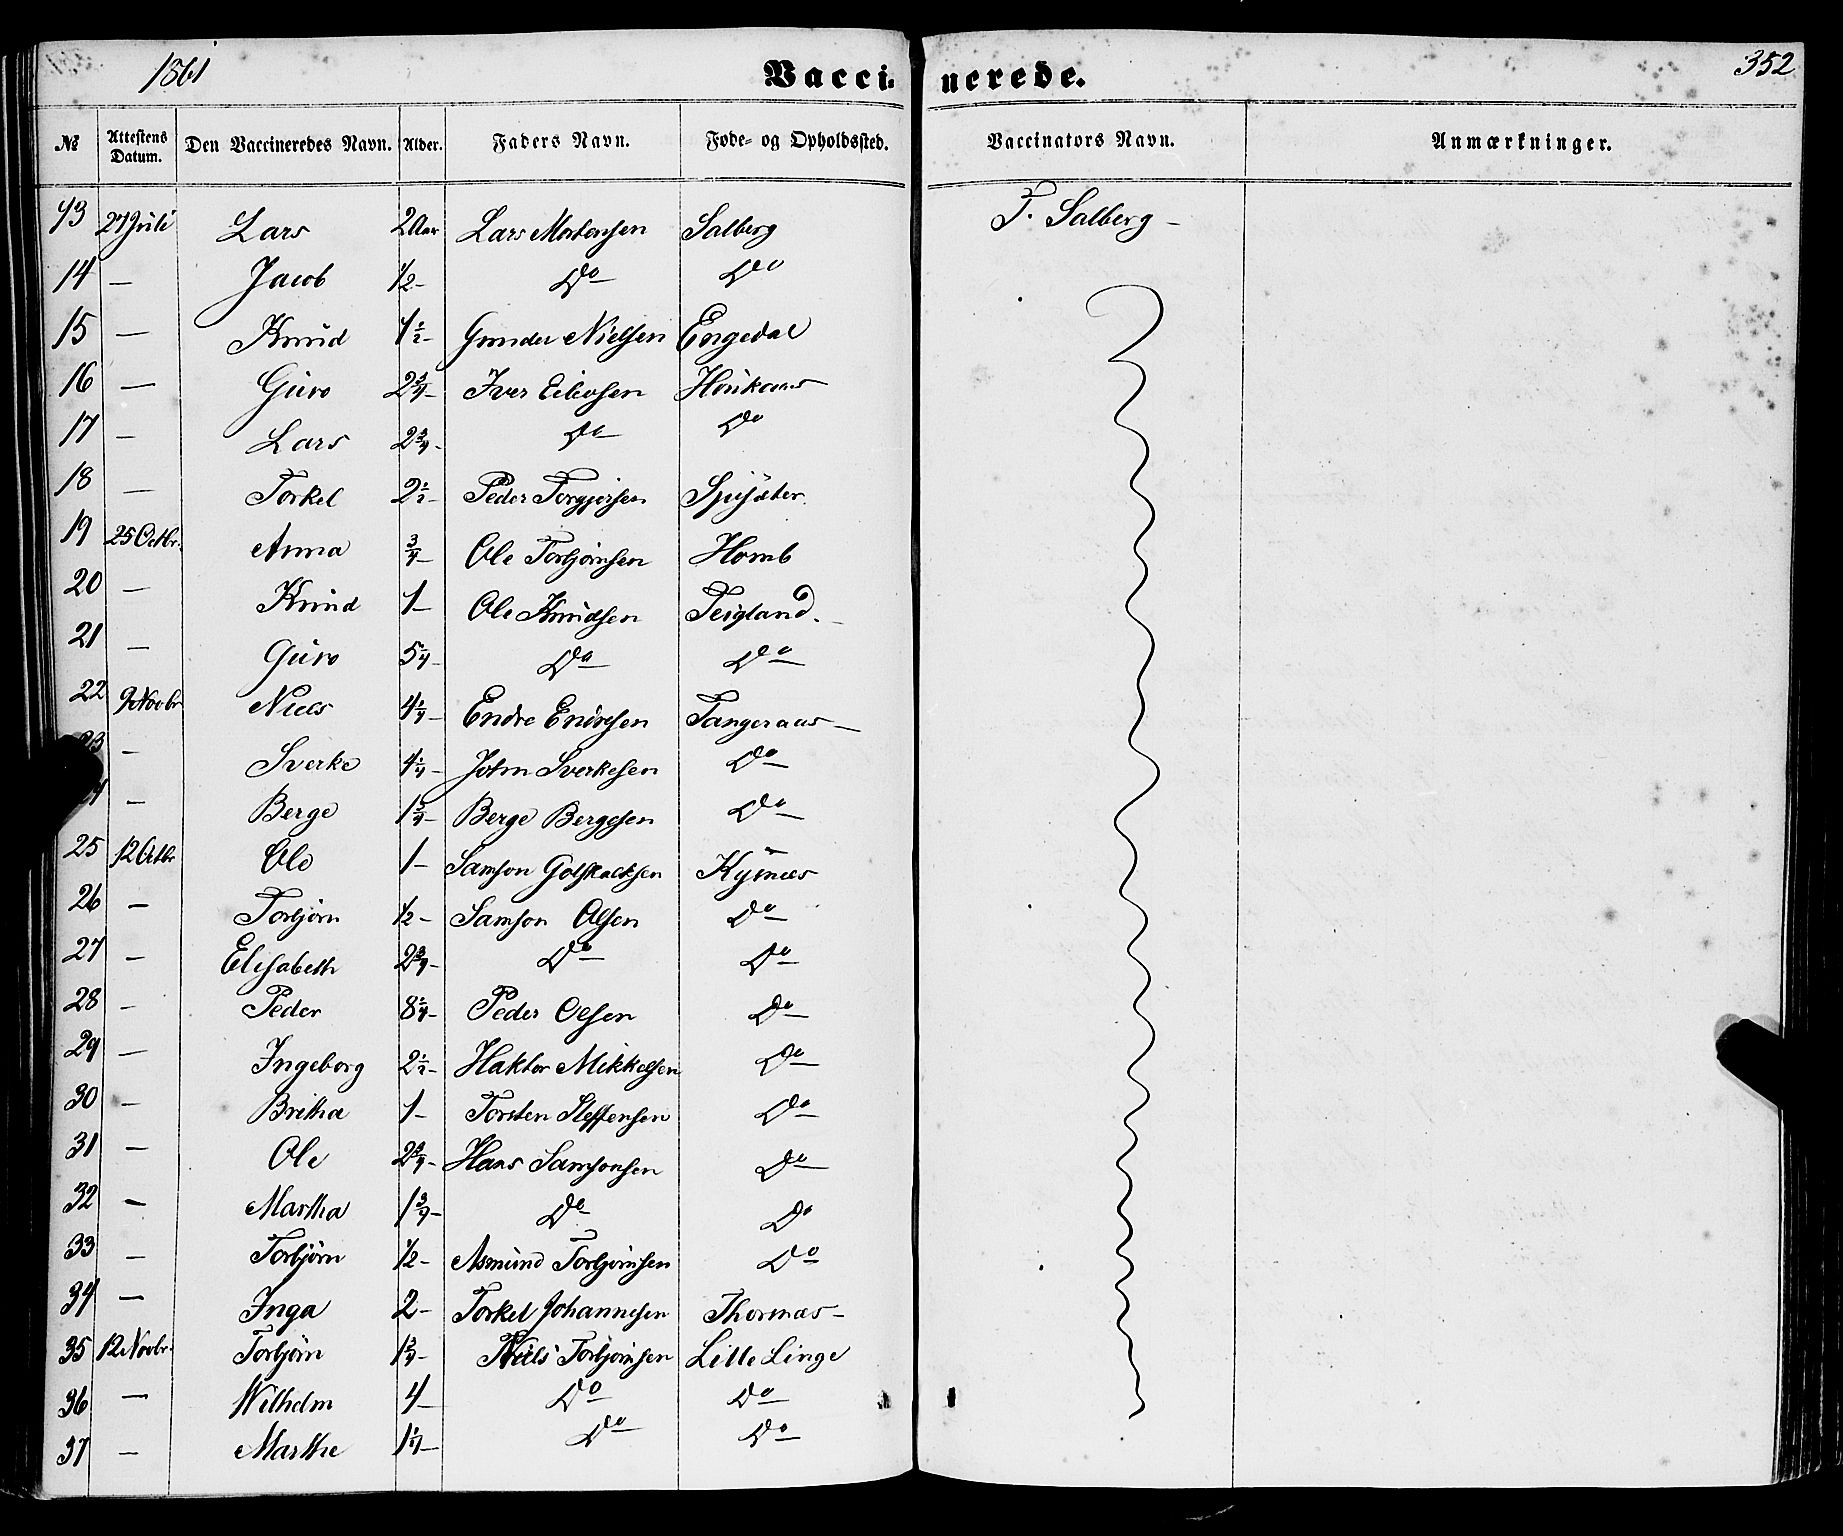 1861 Vaccinerede. 352
№ Attestens Datum. Den Vaccineredes Navn. Alder. Faders Navn. Føde- og Opholdssted. Vaccinators Navn. Anmærkninger.
13 27 Juli Lars 2 Aar Lars Mortensen Salberg T. Salberg –
14 — Jacob 1/2 – Do — Do
15 — Knud 1 1/2 – Gunder Nielsen Engedal
16 — Guro 2 3/4 – Iver
17 — Lars 2 3/4 – Do — Do
18 — Torkel 2 1/2 – Peder
19 25 Octbr. Anna 3/4 – Ole Torbjørnsen Homb
20 — Knud 1 – Ole Knudsen Teigland.
21 — Guro 5 1/4 – Do — Do —
22 9 Novbr Niels 4 1/4 – Endre Endresen Tangeraas —
23 — Sverke 4 1/4 – John Sverkesen Do —
— Berge 1 3/4 – Berge Bergesen Do —
25 12 Octbr Ole 1 – Samson Gotskalksen
26 — Torbjørn 1/2 – Samson Olsen Do —
27 — Elisabeth 2 3/4 – Do — Do —
28 — Peder 8 1/4 – Peder Olsen Do —
29 — Ingeborg 2 1/2 – Haktor Mikkelsen Do —
30 — Britha 1 – Torsten Steffensen Do —
31 — Ole 2 3/4 – Hans Samsonsen Do —
32 — Martha 1 3/4 – Do — Do
33 — Torbjørn 1/2 – Asmund Torbjørnsen Do —
34 — Inga 2 – Torkel Johannesen
35 12 Novbr. Torbjørn 1 3/4 – Niels Torbjørnsen Lille Linge
36 — Wilhelm 4 – Do — Do —
37 — Marthe 1 1/4 – Do — Do —